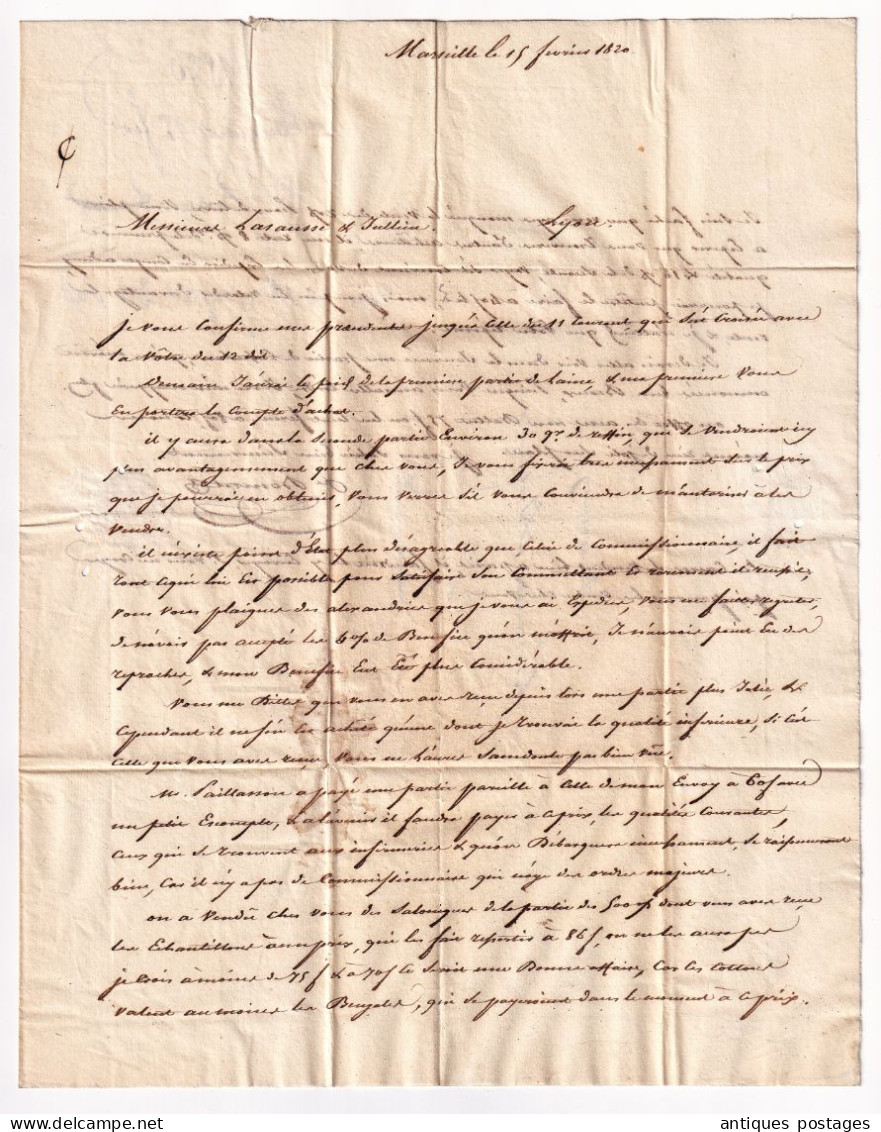 Marseille le 15 fevrier 1820
Messieurs Lasausse & Jullien Lyon
je vous confirme mes precedentes jusqu'a Celle du 11 Courant qui s'est croisée avec
la Vôtre du 12 dit
Demain J'aurai le poids de la premiere partie de Laine, & ma premiere vous
En portera le Compte d'achat.
il y aura dans la seconde partie Environ 30 q. de reffin, qui se Vendroient icy
plus avantageusement que chez vous, Je vous fixerai tres incessament sur le prix
que je pourrai en obtenir, vous verrez s'il vous Conviendra de m'autoriser à les
Vendre.
il n'existe point d'Etat plus désagreable que Celui de Commissionnaire, il fait
tout ce qui lui Est possible pour Satisfaire Son Committant Et rarement il reussit,
vous vous plaignez des alexandries que je vous ai Expediés, vous me faites regretter,
de n'avoir pas accepté les 6 % de Benefice qu'on m'offroit, Je n'aurois point Eu des
reproches, & mon Benefice Eut Eté plus Considérable.
Vous me Dittes que vous en avez reçu depuis lors une partie plus Jolie, &
Cependant il ne s'en Est acheté qu'une dont je trouvai la qualité inferieure, si c'est
Celle que vous avez reçue Vous ne L'aurez Sans doute pas bien vue.
Mr. Paillasson a payé une partie pareille à Celle de mon Envoy à 60f avec
un petit Escompte, & a l'avenir il faudra payer à ce prix, les qualités Courantes,
Ceux qui se trouvent aux infirmeries & qu'on Débarquera incessament, se
bien, Car il n'y a pas de Commissionnaire qui n'aye des ordres majeurs.
on a Vendu chez vous des Saloniques de la partie des dont vous avez reçu
les Echantillons à un prix, qui les fait ressortir à 86f, on ne les aura pas
je Crois à moins de 75f & à 70f Ce seroit une Bonne affaire, Car les Cottons
valent au moins les qui se payeroient dans le moment à Ce prix.
antiques postages